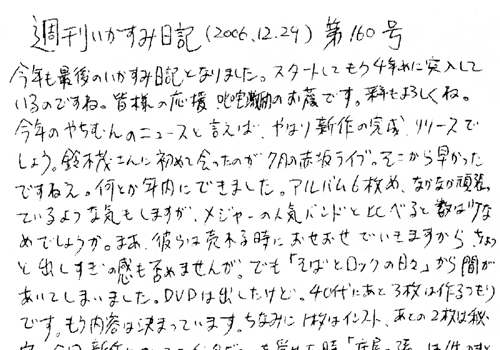 週刊いかすみ日記(2006.12.29) 第160号
今年も最後のいかすみ日記となりました。スタートしてもう4年めに突入して
いるのですね。皆様の応援、叱咤激励のお蔭です。来年もよろしくね。
今年のやちむんのニュースと言えば、やはり新作の完成、リリースで
しょう。鈴木茂さんに初めて会ったのが7月の赤坂ライブ。そこから早かった
ですねえ。何とか年内にできました。アルバム6枚め、なかなか頑張っ
ているような気もしますが、メジャーの人気バンドと比べると数は少な
めでしょうか。まあ、彼らは売れる時におせおせでいきますから、ちょっ
と出しすぎの感も否めませんが。でも「そばとロックの日々」から間が
あいてしまいました。DVDは出したけど。40代にあと3枚は作るつもり
です。もう内容は決まっています。ちなみに1枚はインスト、あとの2枚は秘